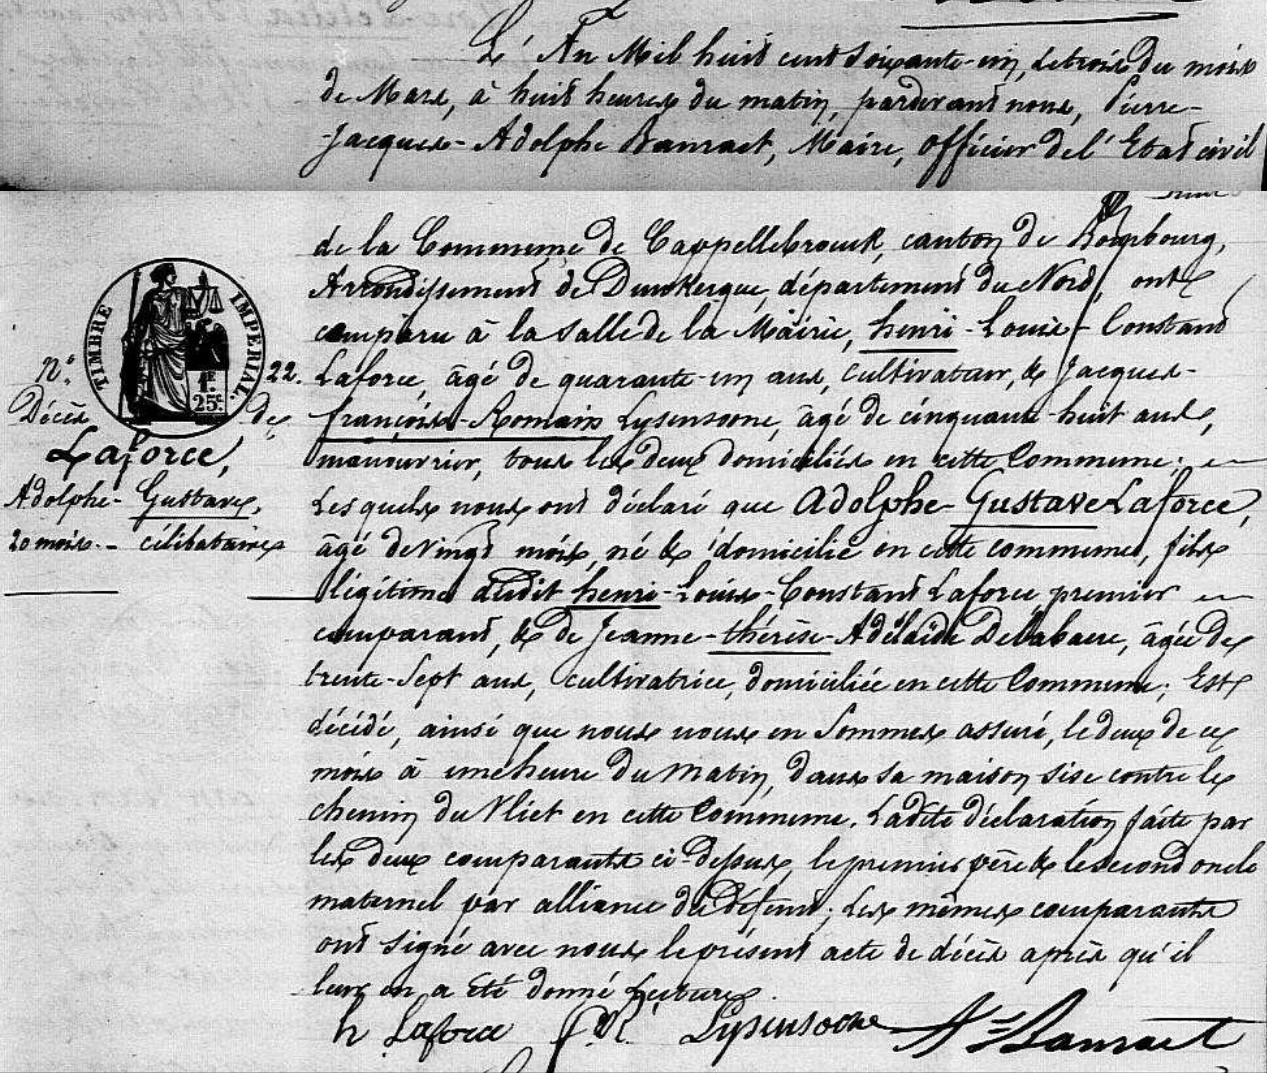 L'An Mil huit cent soixante-un, le trois du mois
de Mars, à huit heures du matin, pardevant nous, Pierre-
Jacques-Adolphe Banraet, Maire, officier de l'Etat civil
de la Commune de Cappellebrouck, canton de Bourbourg,
Arrondissement de Dunkerque, département du Nord, ont
comparu à la salle de la Mairie, henri-Louis-Constant
TIMBRE IMPERIAL.
1F.
25C.
n.° 22.
Décès de
Laforce,
Adolphe-Gustave,
20 mois.- célibataire
Laforce, âgé de quarante-un ans, cultivateur, & Jacques-
françois-Romain Lysensoone, âgé de cinquante-huit ans,
manouvrier, tous les deux domiciliés en cette Commune;
Lesquels nous ont déclaré que Adolphe-Gustave Laforce,
âgé de vingt mois, né & domicilié en cette commune, fils
légitime dudit henri-Louis-Constant Laforce premier
comparant, & de Jeanne-thérèse-Adélaïde Debabaere, âgée de
trente-sept ans, cultivatrice, domiciliée en cette Commune; Est
décédé, ainsi que nous nous en sommes assuré, le deux de ce
mois à une heure du matin, dans sa maison sise contre le
chemin du Vliet en cette Commune. Ladite déclaration faite par
les deux comparants ci-dessus, le premier père & le second oncle
maternel par alliance du défunt; Les mêmes comparants
ont signé avec nous le présent acte de décès après qu'il
leur en a été donné Lecture.
h Laforce f. R. Lysensoone Ad Banraet